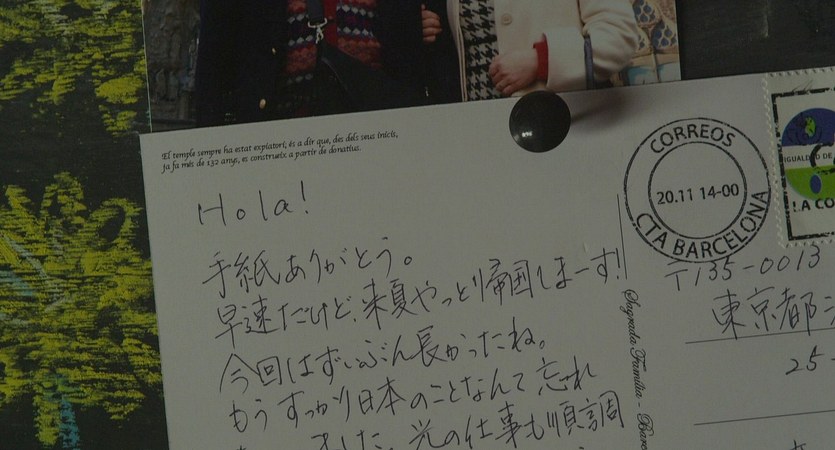 El temple sempre ha estat expiatori; és a dir que, des dels seus inicis,
ja fa més de 132 anys, es construeix a partir de donatius.
Hola!
手紙ありがとう。
早速だけど、来夏やっと帰国しまーす!!
今回はずいぶん長かったね。
もうすっかり日本のことなんて忘れ
ました。光の仕事も順調
Sagrada Família - Barc
CORREOS
20.11 14-00
CTA BARCELONA
IGUALDAD DE
LA CO
〒135-0013
東京都
25